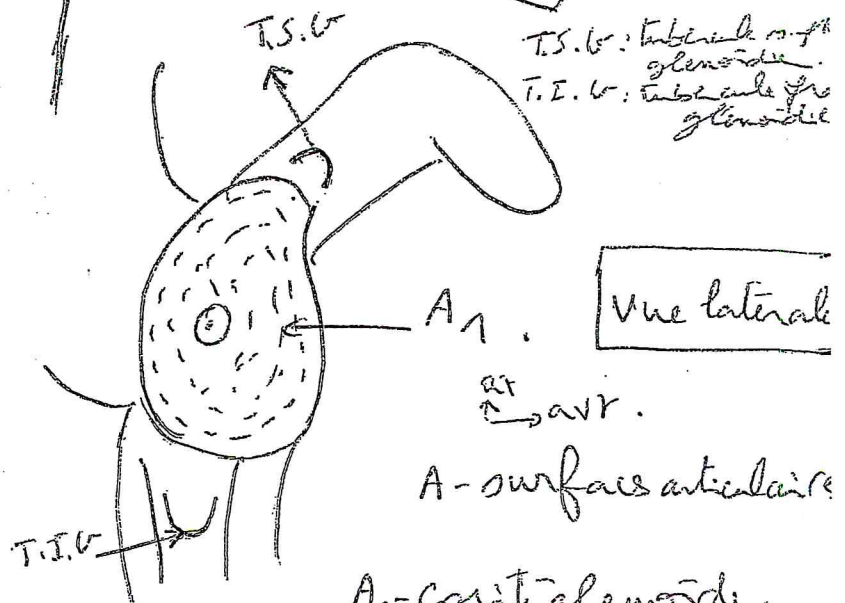 T.S.G
T.S.G : tubercule
glenoïdie
T.I.G : tubercule
glenoïdie
A1.
Vue latérale
avt.
A - surfaces articulaire
T.I.G
A - cavité glenoïdi